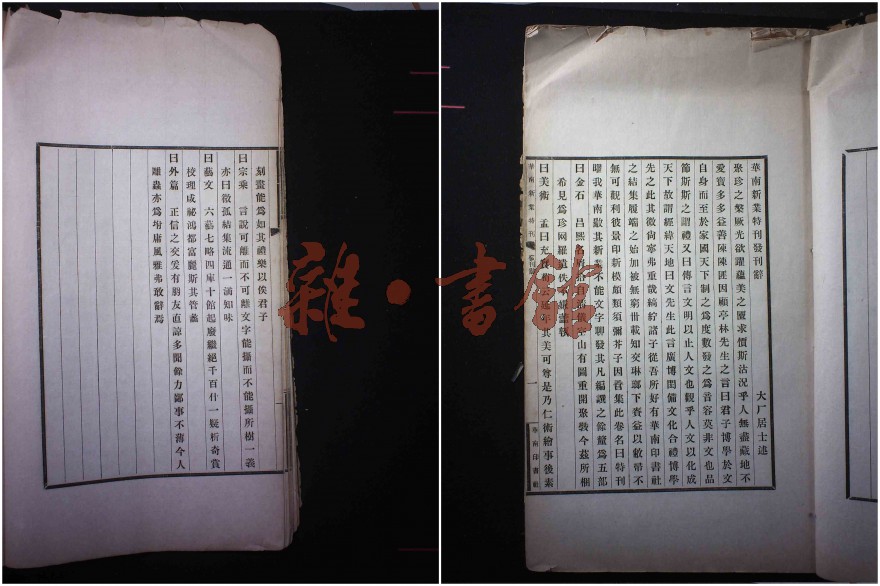 華南新業特刊發刊辭
大厂居士述
聚珍之槃厥光欲躍蘊美之匵求價斯沽況乎人無盡藏地不
愛寶多多益善陳陳匪因顧亭林先生之言曰君子博學於文
自身而至於家國天下制之為度數發之為音容莫非文也品
節斯斯之謂禮又曰傳言文明以止人文也觀乎人文以化成
天下故謂經緯天地曰文先生此言廣博閎備文化合禮博學
先之此其微尚寧弗重哉縞紵諸子從吾所好有華南印書社
之結集履端之始加被無窮世載知交琳瑯下賁益以敝帚不
無可觀利彼景印新模頗類須彌芥子因首集此卷名曰特刊
曜我華南歟其新業不能文字聊發其凡編譔之餘釐為五部
曰金石 呂熙 山有圖重開聚裝今茲所
希見為珍网羅遺佚
曰美術 孟曰充 其美可尊是乃仁術繪事後素
華南新業特刊 一 華南印書社
刻畫能為如其禮樂以俟君子
曰宗乘 言說可離而不可離文字能攝而不能攝所樹一義
亦曰微孤結集流通一滴知味
曰藝文 六藝七略四庫十館起廢繼絕千百什一疑析奇賞
校理成祕鴻都富麗斯其管蠡
曰外篇 正信之交爰有朋友直諒多聞餘力鄙事不薄今人
雕蟲亦為坿庸風雅弗敢辭焉
雜·書館